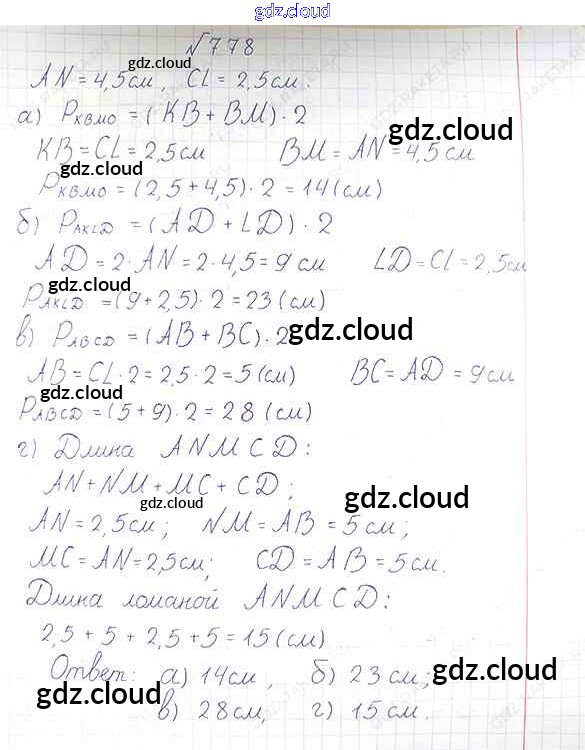 gdz.cloud
№778
gdz.cloud
AN = 4,5см, CL = 2,5см.
а) PKBMO = (KB + BM) · 2
gdz.cloud
KB = CL = 2,5см BM = AN = 4,5см
PKBMO = (2,5 + 4,5) · 2 = 14 (см)
б) PAKLD = (AD + LD) · 2
gdz.cloud
AD = 2 · AN = 2 · 4,5 = 9 см LD = CL = 2,5см
gdz.cloud
PAKLD = (9 + 2,5) · 2 = 23 (см)
в) PABCD = (AB + BC) · 2
gdz.cloud
AB = CL · 2 = 2,5 · 2 = 5 (см) BC = AD = 9 см
gdz.cloud
PABCD = (5 + 9) · 2 = 28 (см)
г) Длина ANMCD:
AN + NM + MC + CD;
gdz.cloud
gdz.cloud
AN = 2,5см; NM = AB = 5 см;
MC = AN = 2,5см; CD = AB = 5см.
gdz.cloud
Длина ломаной ANMCD:
2,5 + 5 + 2,5 + 5 = 15 (см)
Ответ: а) 14см, б) 23 см;
gdz.cloud
gdz.cloud
в) 28см, г) 15 см.